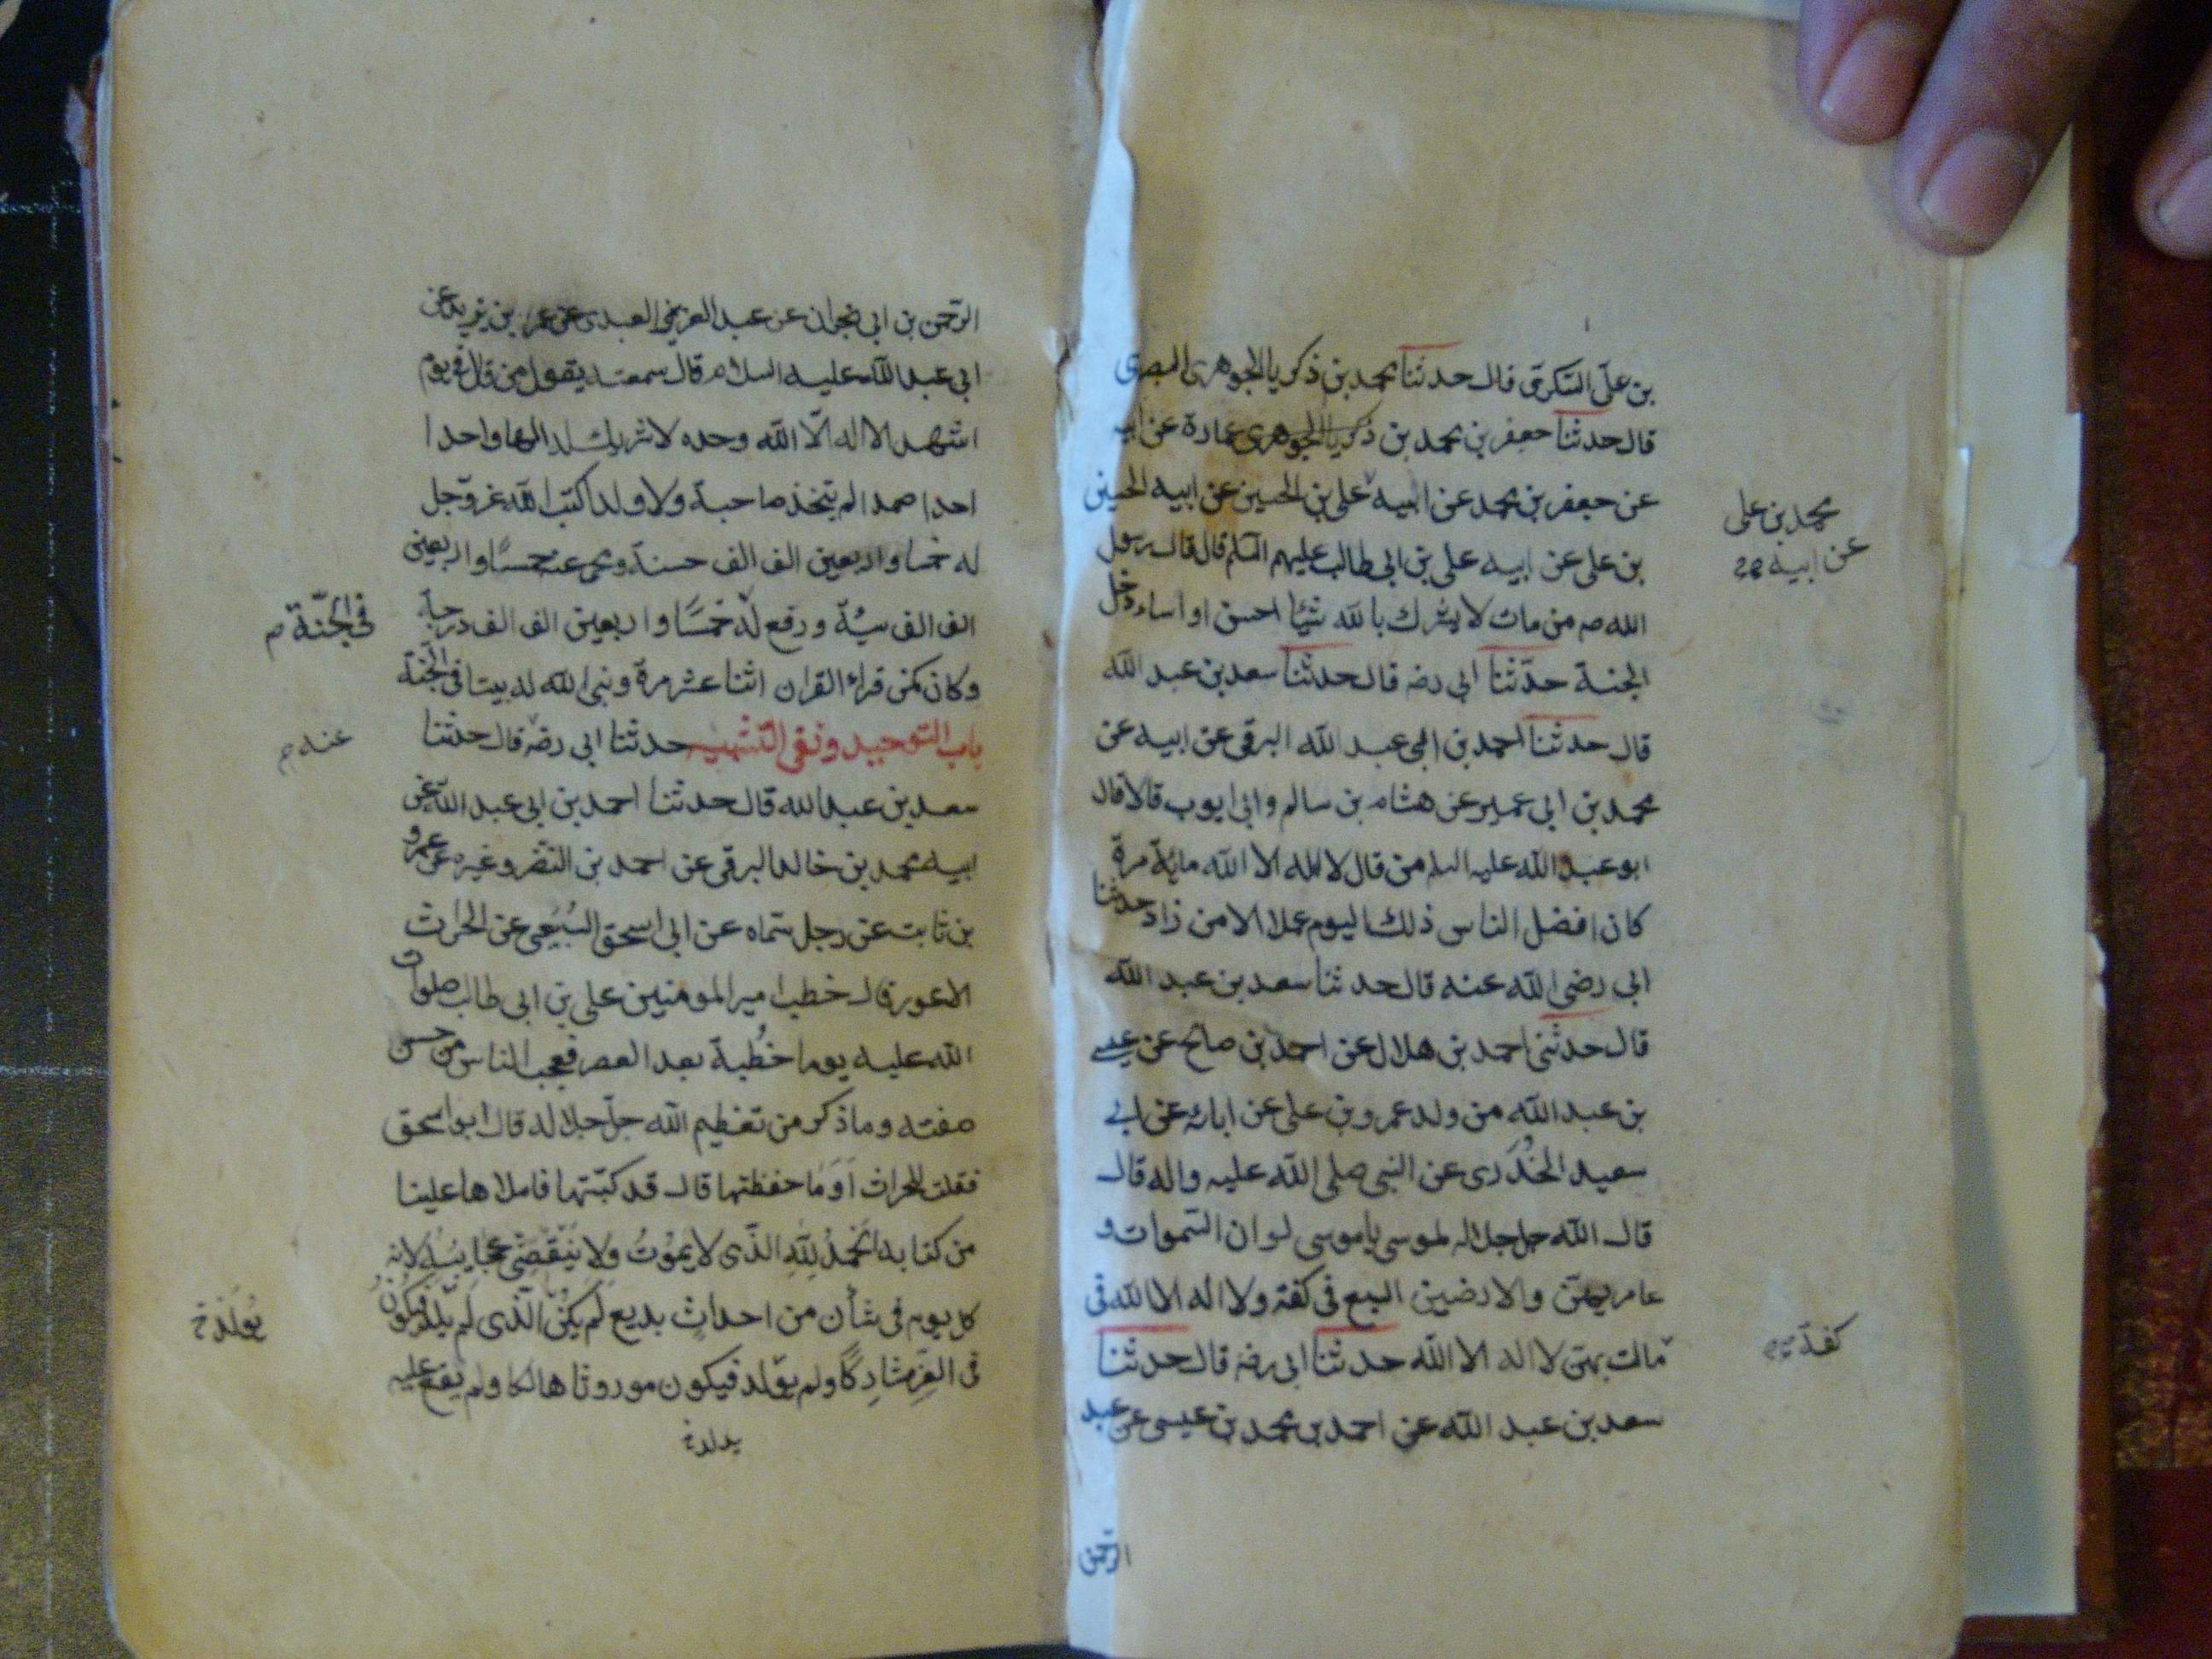 بن علی السکری قال حدثنا محمد بن ذکریا الجوهری البصری
قال حدثنا جعفر بن محمد بن ذکریا الجوهری عمارة عن ابیه
عن جعفر بن محمد عن ابیه علی بن الحسین عن ابیه الحسین
محمد بن علی
عن ابیه
بن علی عن ابیه علی بن ابی طالب علیهم السلم قال قال رسول
الله ص من مات لا یشرک بالله شیئا احسن او اساء دخل
الجنة حدّثنا ابی رضه قال حدثنا سعد بن عبد الله
قال حدثنا احمد بن ابی عبد الله البرقی عن ابیه عن
محمد بن ابی عمیر عن هشام بن سالم وابی ایوب قالا قال
ابو عبد الله علیه السلم من قال لا اله الا الله مایة مرة
کان افضل الناس ذلک الیوم عملا الا من زاد حدثنا
ابی رضی الله عنه قال حدثنا سعد بن عبد الله
قال حدثنی احمد بن هلال عن احمد بن صالح عن عیسی
بن عبد الله من ولد عمر وبن علی عن ابائه عن ابی
سعید الخُدری عن النبی صلی الله علیه واله قال
قال الله جل جلاله لموسی یاموسی لو ان السّموات و
عامریهنّ والارضین السبع فی کفة ولا اله الا الله فی
کفة
مالت بهنّ لا اله الا الله حدثنا ابی رضه قال حدثنا
سعد بن عبد الله عن احمد بن محمد بن عیسی عن عبد
الرّحمن
الرّحمن بن ابی نجران عن عبد العزیز العبدی عن عمر بن یزید عن
ابی عبد الله علیه السلام قال سمعته یقول من قال فی یوم
اشهد ان لا اله الّا الله وحده لا شریک له الها واحدا
احدا صمدا لم یتخذ صاحبة ولا ولدا کتب الله عزوجل
له خمسا واربعین الف الف حسنة ومحی عنه خمسًا واربعین
الف الف سیّئة ورفع له خمسًا واربعین الف الف درجة
فی الجنّة م
وکان کمن قراء القران اثنا عشر مرة وبنی الله له بیتا فی الجنة
باب التوحید ونفی التّشبیه حدثنا ابی رضه قال حدثنا
عنه م
سعد بن عبد الله قال حدثنا احمد بن ابی عبد الله عن
ابیه محمد بن خالد البرقی عن احمد بن النضر وغیره عن عمرو
بن ثابت عن رجل سمّاه عن ابی اسحق السُبَیعی عن الحارث
الاعور قال خطب امیر المومنین علی بن ابی طالب صلوات
الله علیه یوما خُطبة بعد العصر فعجب الناس من حسن
صفته وما ذکر من تعظیم الله جلّ جلاله قال ابو اسحق
فقلت للحارث اَوَما حفظتها قال قد کتبتها فاملاها علینا
من کتابه اَلحَمدُ لِلّهِ الذّی لا یَموُتُ ولا یَنقَضِی عجایبُه لانه
کل یوم فی شأن من احداث بدیع لَم یَکُن الّذی لَم یَلِد فیکُونُ
یُولَد خ
فی العِزّ مشارِکًا ولم یوُلَد فیکون موروثا هالکا ولم یقع علیه
یلد خ